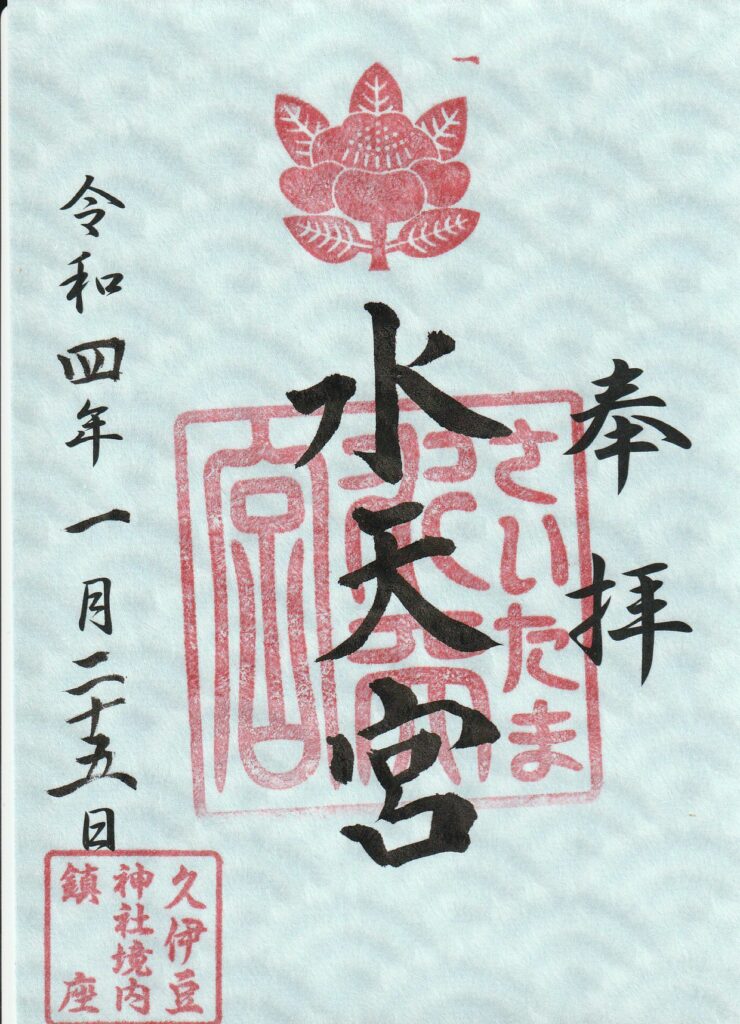 奉拝
さいたま
水天宮
水天宮
令和四年一月二十五日
久伊豆
神社境内
鎮座